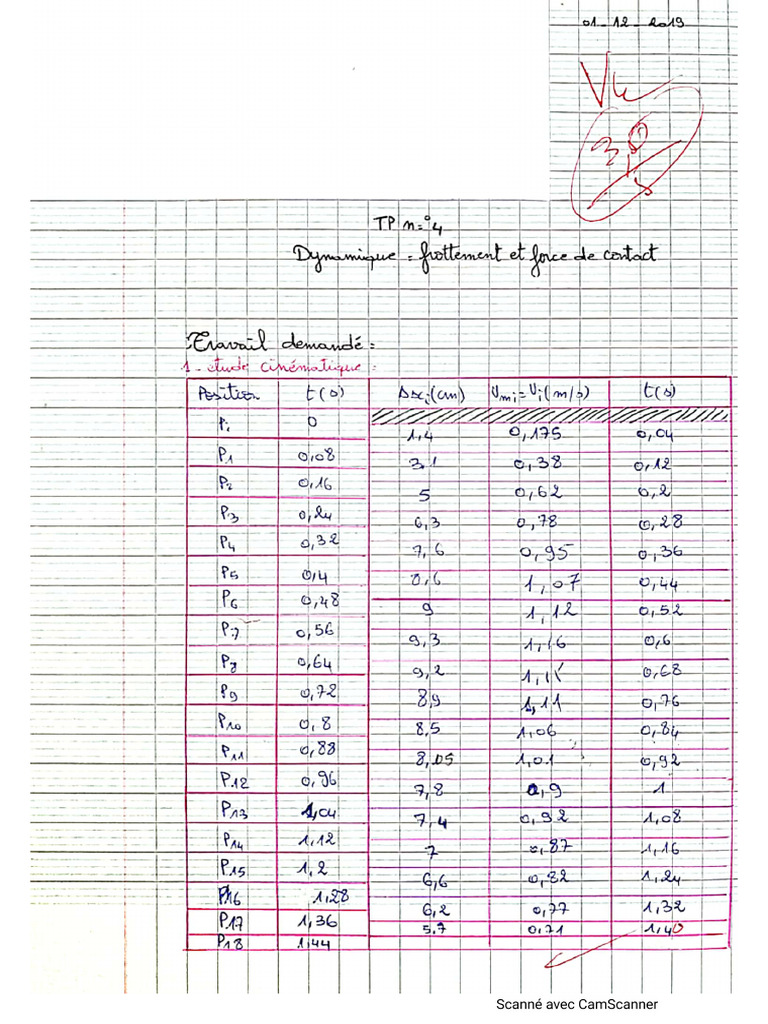 01-12-2019
TP n=°4
Dynamique = frottement et force de contact
Travail demandé =
1 - etude cinématique =
Position t(s) Δxi(cm) Vmi=Vi(m/s) t(s)
Pi 0
1,4 0,175 0,04
P1 0,08
3,1 0,38 0,12
P2 0,16
5 0,62 0,2
P3 0,24
6,3 0,78 0,28
P4 0,32
7,6 0,95 0,36
P5 0,4
8,6 1,07 0,44
P6 0,48
9 1,12 0,52
P7 0,56
9,3 1,16 0,6
P8 0,64
9,2 1,15 0,68
P9 0,72
8,9 1,11 0,76
P10 0,8
8,5 1,06 0,84
P11 0,88
8,05 1,01 0,92
P12 0,96
7,8 0,9 1
P13 1,04
7,4 0,92 1,08
P14 1,12
7 0,87 1,16
P15 1,2
6,6 0,82 1,24
P16 1,28
6,2 0,77 1,32
P17 1,36
5,7 0,71 1,40
P18 1,44
Scanné avec CamScanner